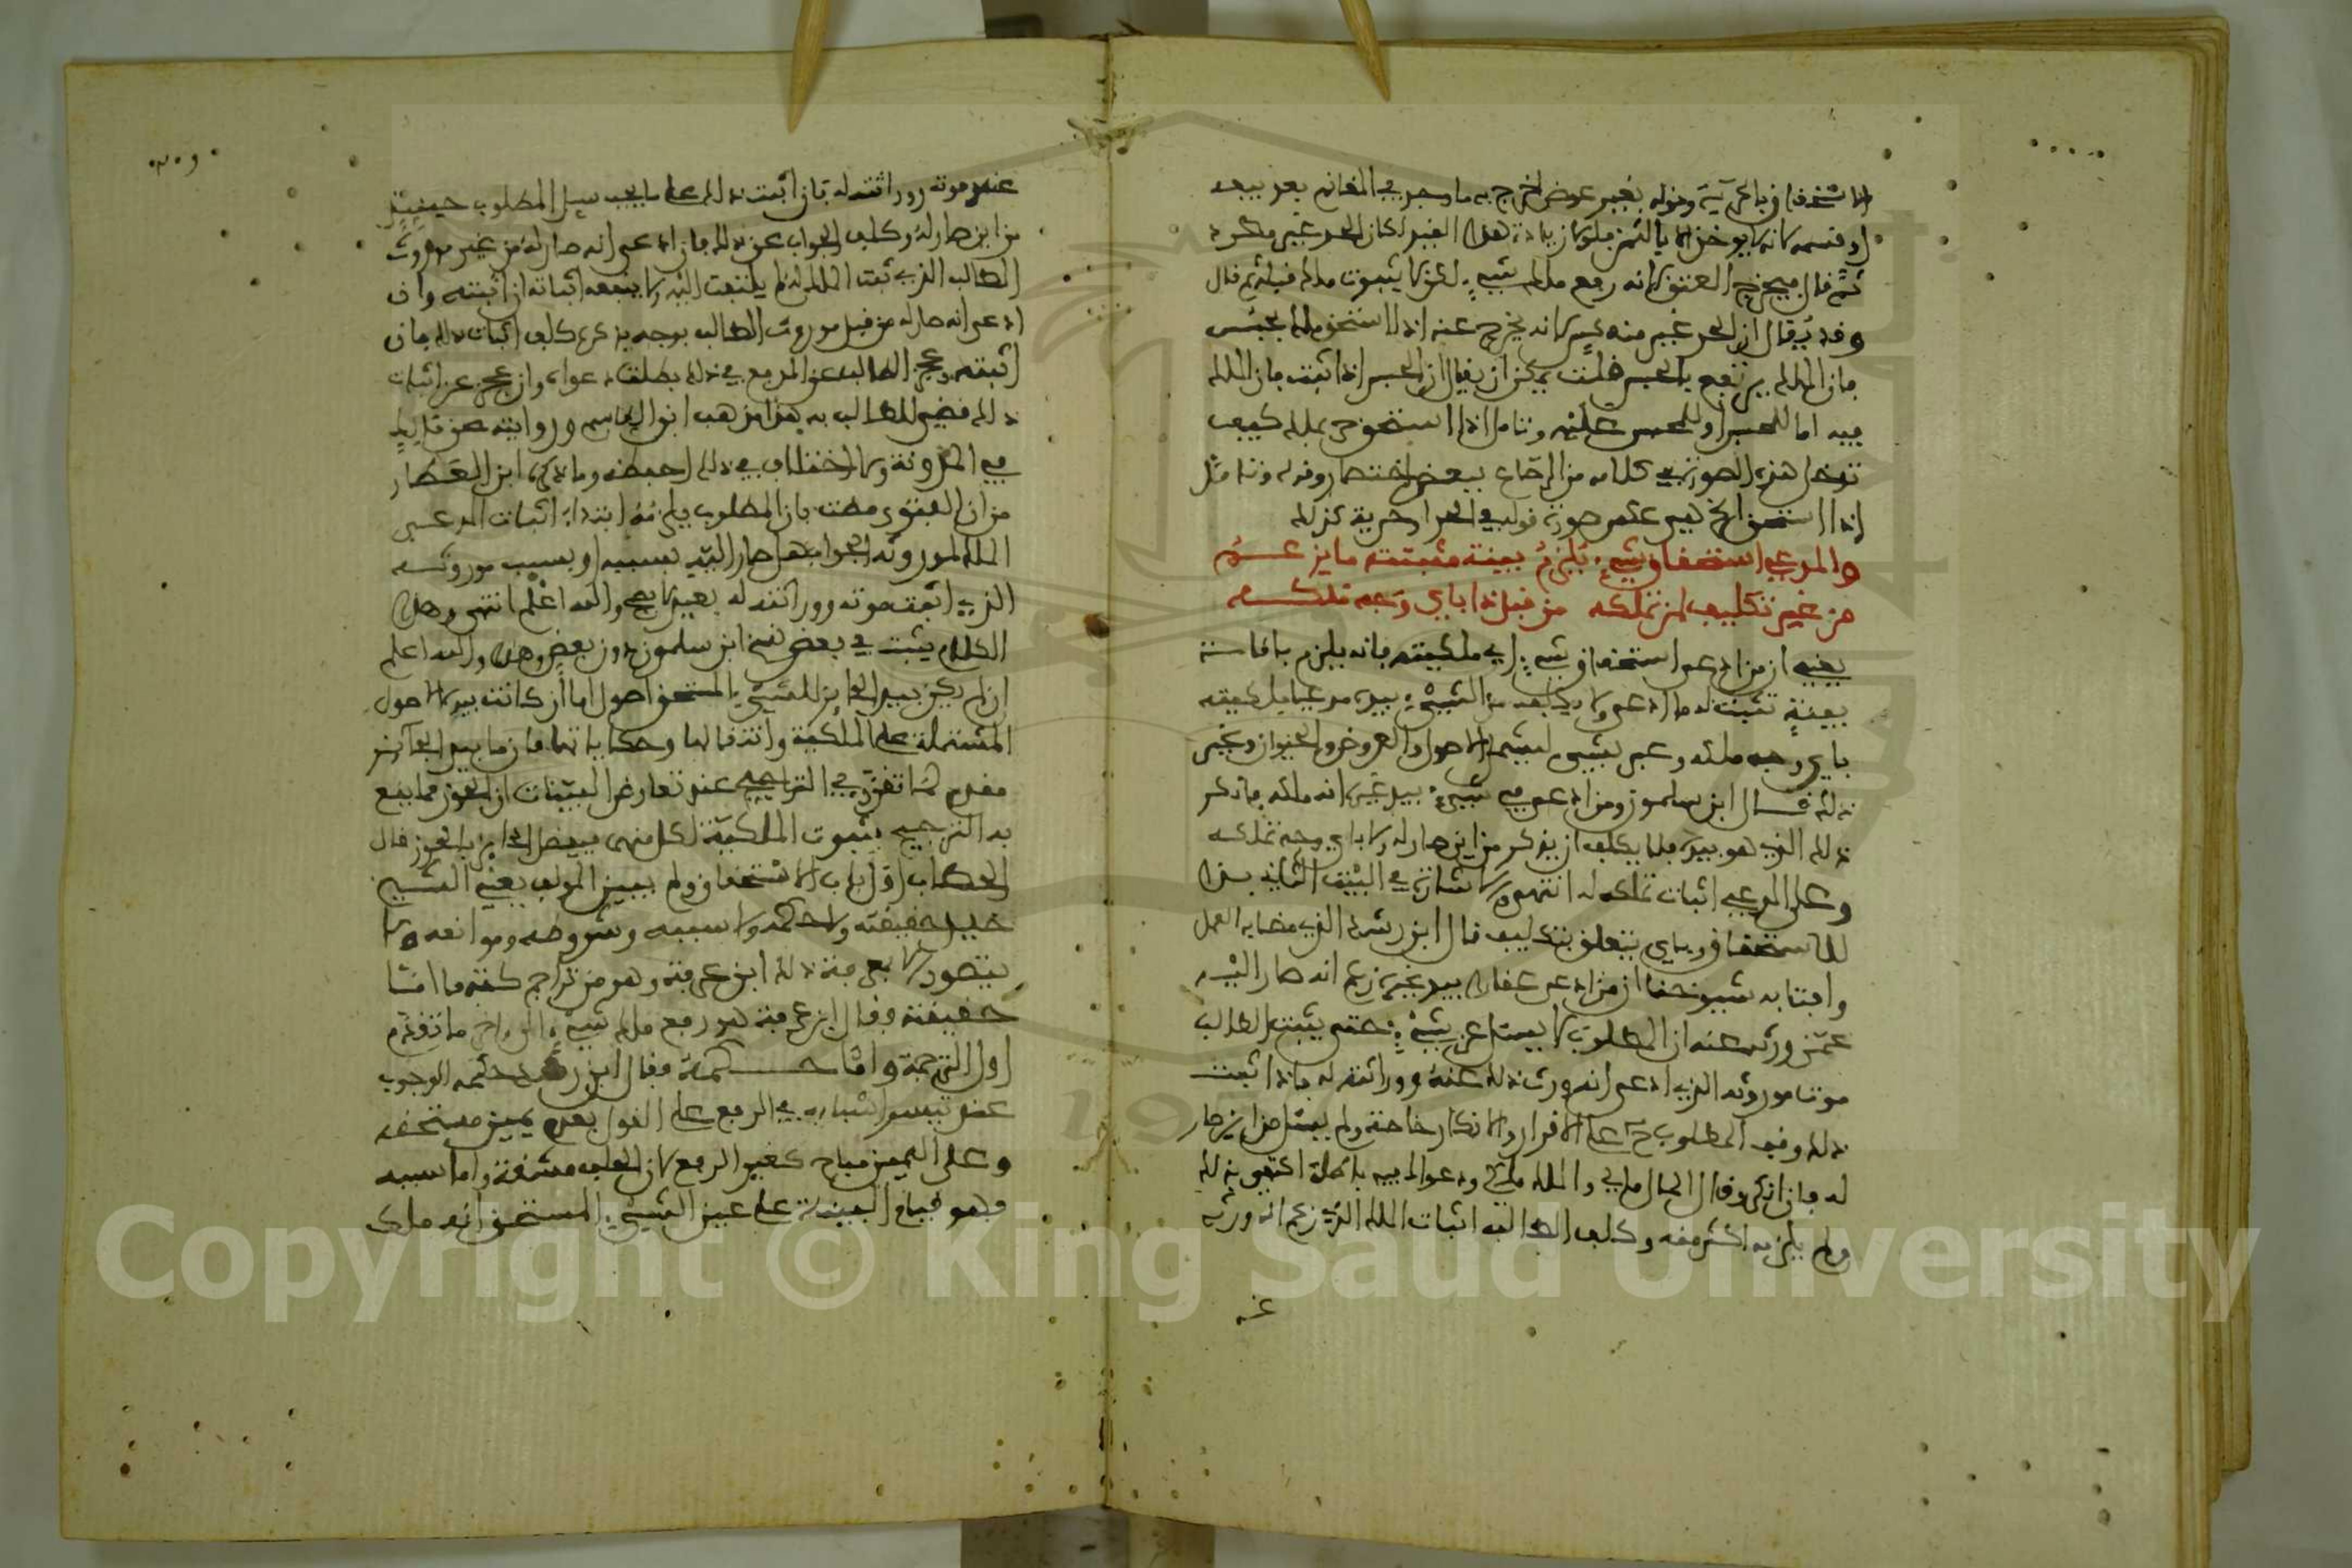 الاستحقاق بالحرية وقوله بغير عوض اخرج به ما وجد في المغانم بعد بيعه
او قسمه لانه لا يوخذ الا بالثمن فلولا زيادة هذا القيد لكان الحد غير مطرد
ثم قال فيخرج العتق لانه رفع ملك شيء لكن لا بثبوت ملك قبله ثم قال
وقد يقال ان الحد غير منعكس لانه يخرج عنه اذا استحق ملك بحبس
فان الملك يرتفع بالحبس قلت يمكن ان يقال ان الحبس اذا ثبت فان الملك
فيه اما للمحبس او للمحبس عليه وتامل اذا استحق حر بملك كيف
تدخل هذه الصورة في كلامه من الرصاع ببعض اختصار وقوله وتامل
اذا استحق الخ هي عكس صورة قوله في الحد او حرية كذلك
والمدعي استحقاق شيء يلزم بينة مثبتة ما يزعم
من غير تكليف لمن تملكه من قبل ذا باي وجه ملكه
يعني ان من ادعى استحقاق شيء اي ملكيته فانه يلزم باقامة
بينة تثبت له ما ادعى ولا يكلف من الشيء بيده مدعيا ملكيته
باي وجه ملكه وعبر بشيء ليشمل الاصول والعروض والحيوان وغير
ذلك قال ابن سلمون ومن ادعى في شيء بيد غيره انه ملكه فانكر
ذلك الذي هو بيده فلا يكلف ان يذكر من اين صار له ولا باي وجه تملكه
وعلى المدعي اثبات تملكه له انتهى والاشارة في البيت الثاني بذا
للاستحقاق وباي يتعلق بتكليف قال ابن رشد الذي مضى به العمل
وافتا به شيوخنا ان من ادعى عقارا بيد غيره زعم انه صار اليه
عمن ورثه عنه ان المطلوب لا يسئل عن شيء حتى يثبت الطالب
موت موروثه الذي ادعى انه ورث ذلك عنه ووراثته له فاذا اثبت
ذلك وقف المطلوب ح على الاقرار والانكار خاصة ولم يسئل من اين صار
له فان انكر وقال المال مالي والملك ملكي ودعواك فيه باطلة اكتفي بذلك
ولم يلزمه اكثر منه وكلف الطالب اثبات الملك الذي زعم انه ورثه
عند موته ووراثته له فان اثبت ذلك على ما يجب سئل المطلوب حينئذ
من اين صار له وكلف الجواب عن ذلك فان ادعى انه صار له من غير موروث
الطالب الذي ثبت الملك له لم يلتفت اليه ولا ينفعه اثباته ان اثبته وان
ادعى انه صار له من قبل موروث الطالب بوجه يذكره كلف اثبات ذلك فان
اثبته وعجز الطالب عن المدفع في ذلك بطلت دعواه وان عجز عن اثبات
ذلك قضي للطالب به هذا مذهب ابن القاسم وروايته عن مالك
في المدونة ولا اختلاف في ذلك احفظه وما ذكره ابن العطار
من ان الفتوى مضت بان المطلوب يلزمه ابتداء اثبات المدعي
الملك لموروثه الجواب هل صار اليه بسببه او بسبب موروثه
الذي اثبت موته ووراثته له بعيد لا يصح والله اعلم انتهى وهذا
الكلام يثبت في بعض نسخ ابن سلمون دون بعض وهذا والله اعلم
ان لم يكن بيد الحائز للشيء المستحق اصول اما ان كانت بيده الاصول
المشتملة على الملكية وانتقالها وحكاياتها فان ما بيد الحائز
مقدم لما تقرر في التراجيح عند تعارض البينات ان الحوز مما يقع
به الترجيح بثبوت الملكية لكل منهما فيفضل الحائز بالحوز قال
الحطاب اول باب الاستحقاق ولم يبين المولف يعني الشيخ
خليل حقيقته ولا حكمه ولا سببه وشروطه وموانعه ولا
يتصور الا بمعرفة ذلك ابن عرفة وهو من تراجم كتبه ما انشا
حقيقته فقال ابن عرفة هو رفع ملك شيء الى اخر ما تقدم
اول الترجمة واما حكمه فقال ابن رشد حكمه الوجوب
عند تيسر اسبابه في الربع على القول بعدم يمين مستحقه
وعلى اليمين مباح كغير الربع لان الحلف مشقة واما سببه
فهو قيام البينة على عين الشيء المستحق انه ملك
Copyright © King Saud University